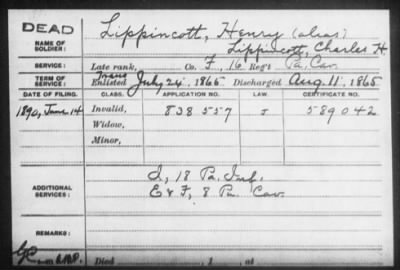 DEAD
NAME OF SOLDIER: Lippincott, Henry (alias)
Lippincott, Charles H.
SERVICE: Late rank, Co. F, 16 Reg't Pa. Cav.
TERM OF SERVICE: Trans Enlisted July 24, 1865 Discharged Aug. 11, 1865
DATE OF FILING. CLASS. APPLICATION NO. LAW. CERTIFICATE NO.
1890, June 14 Invalid, 838557 J 589042
Widow,
Minor,
ADDITIONAL SERVICES: I, 18 Pa. Inf.
E & F, 8 Pa. Cav.
REMARKS:
Died , 1 , at